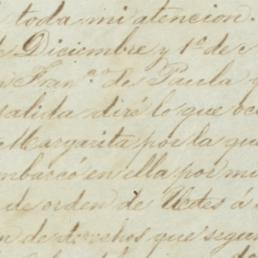 toda mi atencion.
Diciembre y 1º de
Fran.co de Paula y
salida diré lo que oc
Margarita por la qu
mbarcó en ella por mi
de orden de Uctes á
n de derechos que segun